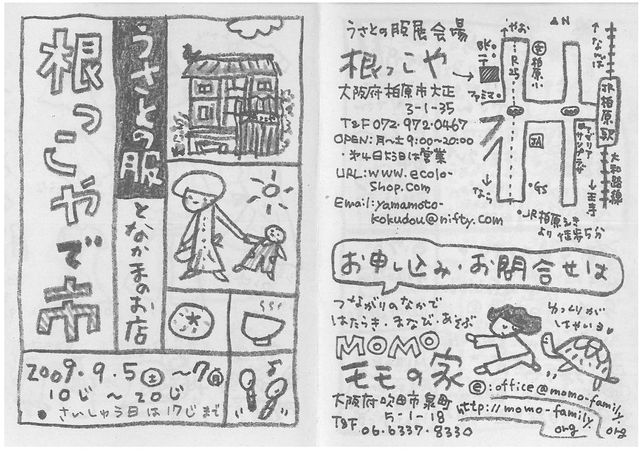 うさとの服
となかまのお店
根っこやで市
2009・9・5(土)~7(月)
10じ~20じ
●さいしゅう日は17じまで
うさとの服展会場
根っこや
大阪府柏原市大正
3-1-35
T&F 072・972・0467
OPEN:月~土 9:00-20:00
・第4日曜日は営業
URL:www.ecolo-
shop.com
Email:yamamoto-
kokudou@nifty.com
N
やお
なんば
R25
柏原小
ファミマ
JR柏原駅
JA
GS
アゼリア
サンプラザ
大和路線
王寺
なら
JR柏原えき
より徒歩5分
お申し込み・お問合せは
つながりのなかで
はたらき・まなび・あそぶ
MOMO
モモの家
ゆっくりが
はやいヨ
大阪府吹田市泉町
5-1-18
T&F
06・6337・8330
e:office@momo-family.
org
http://momo-family.
org